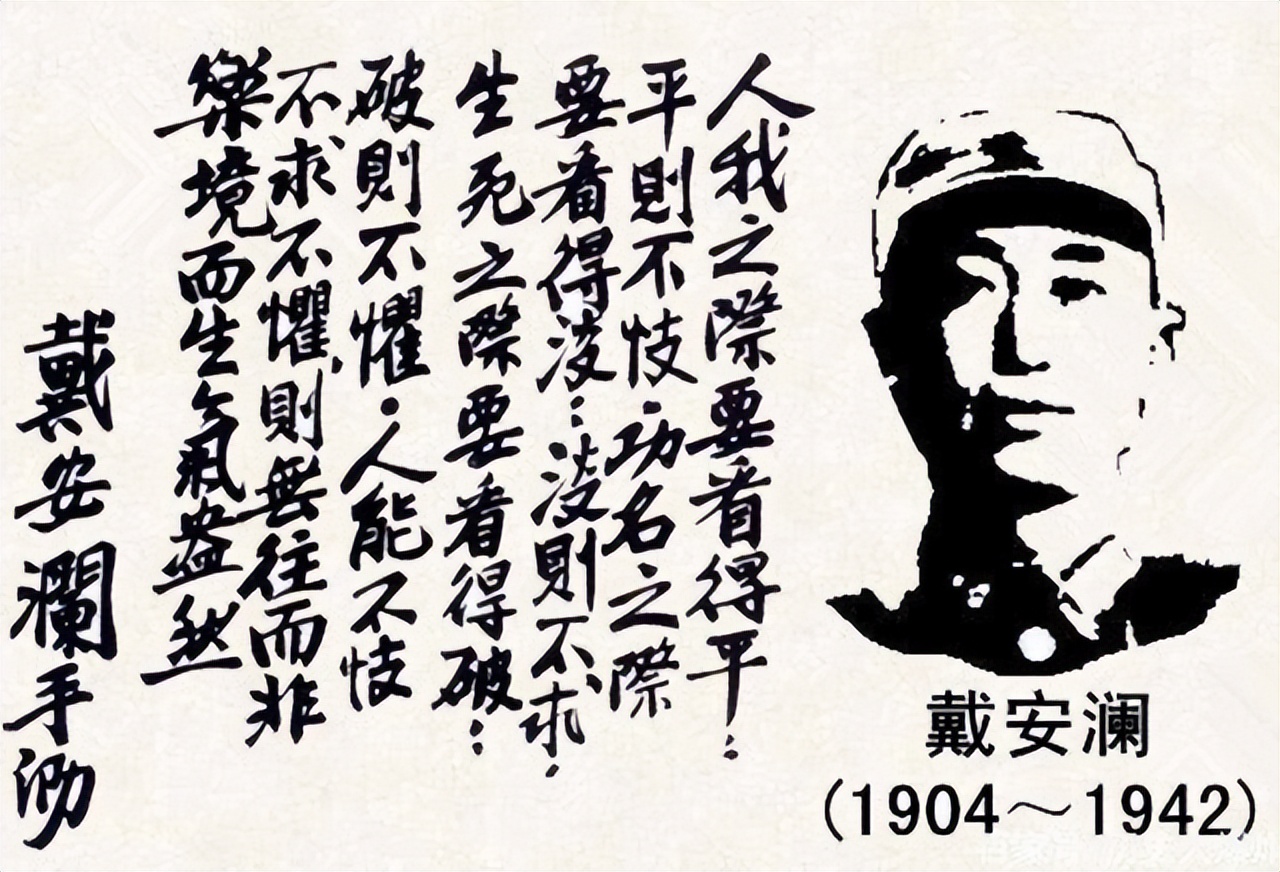 人我之際要看得平:
平則不忮.功名之際
要看得淡:淡則不求.
生死之際要看得破:
破則不懼.人能不忮
不求不懼,則無往而非
樂境而生氣盎然
戴安瀾手泐
戴安澜
(1904～1942)